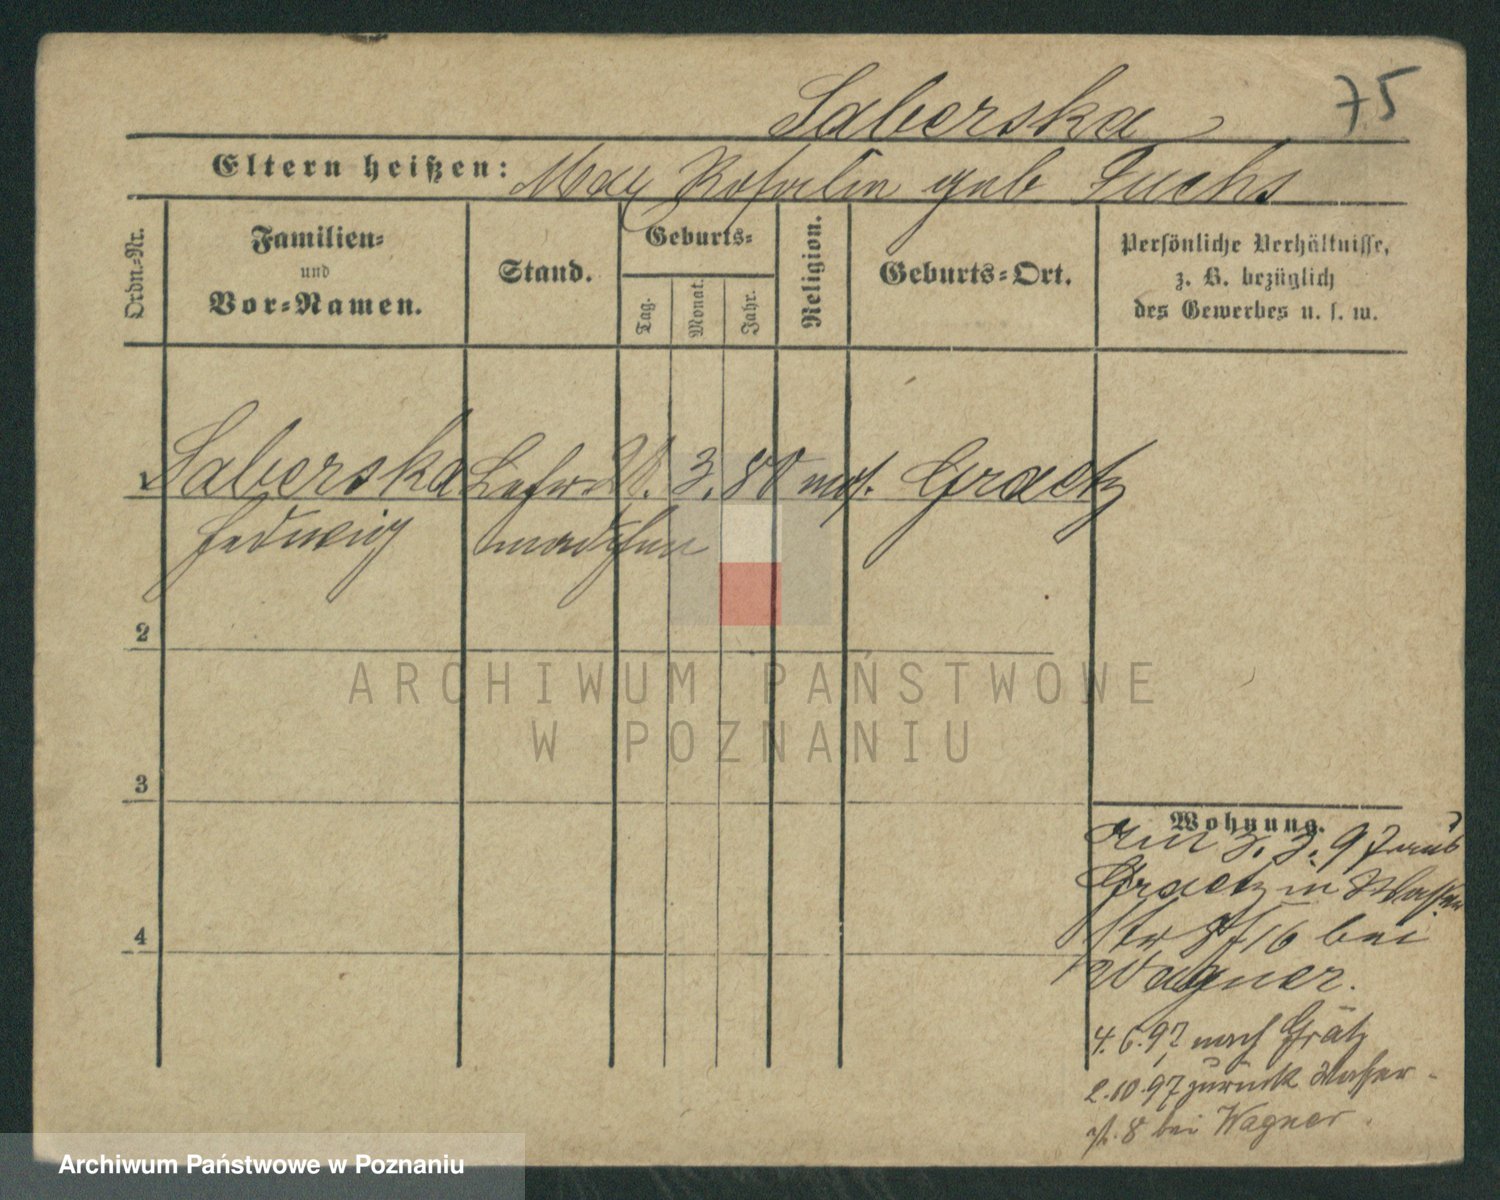 Saberska
75
Eltern heißen: Max Rosalin geb Fuchs
Ordn.-Nr.
Familien-
und
Vor-Namen.
Stand.
Geburts-
Tag.
Monat.
Jahr.
Religion.
Geburts-Ort.
Persönliche Verhältnisse,
z. B. bezüglich
des Gewerbes u. s. w.
1 Saberska Lehr 3. 80 mos. Graetz
Hedwig mädchen
2
3
4
Wohnung.
Am 3. 3. 97 aus
Graetz in Wasser
str 8/7 16 bei
Wagner.
4. 6. 97 nach Grätz
2. 10. 97 zurück Wasser-
st. 8 bei Wagner.
ARCHIWUM PAŃSTWOWE
W POZNANIU
Archiwum Państwowe w Poznaniu